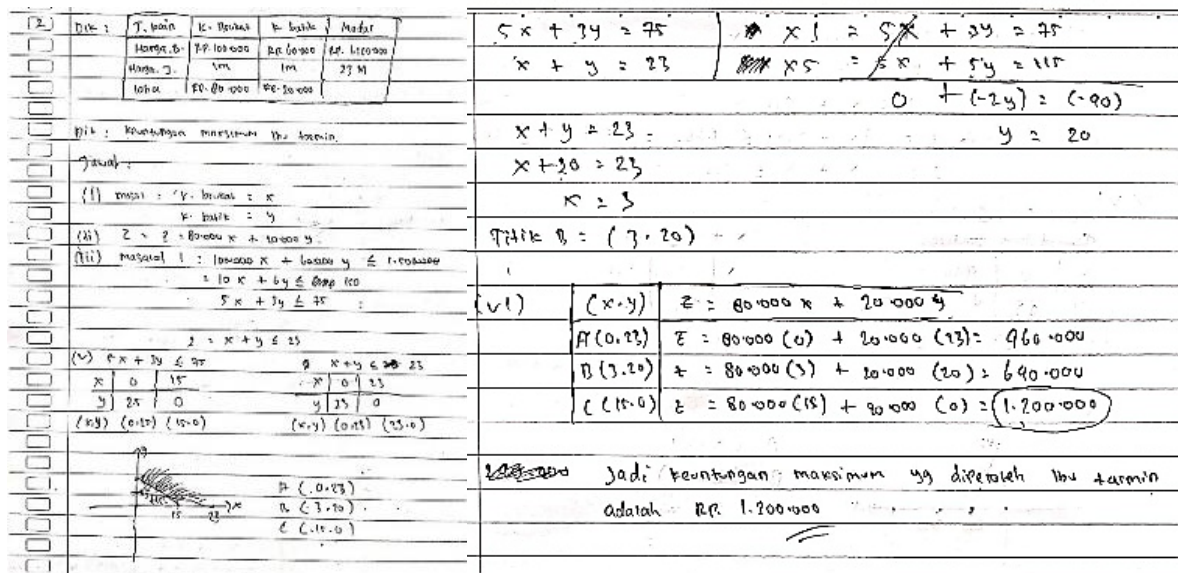 2 Dik : J. kain K. Brukat K batik Modal
Harga. B. RP. 100.000 RP. 60.000 RP. 1.500.000
Harga. J. 1m 1m 23 M
laba RP. 80.000 RP. 20.000
Dit : keuntungan maksimum Ibu tarmin.
Jawab :
(i) misal : K. brukat = x
K. batik = y
(ii) Z = 80.000 x + 20.000 y
(iii) masalal 1 : 100.000 x + 60.000 y ≤ 1.500.000
= 10 x + 6y ≤ 150
5x + 3y ≤ 75
2 = x + y ≤ 23
(v) 5x + 3y ≤ 75 x+y ≤ 23
x 0 15 x 0 23
y 25 0 y 23 0
(x.y) (0.25) (15.0) (x.y) (0.23) (23.0)
y
x
15 23
A (0.23)
B (3.20)
C (15.0)
5x + 3y = 75 x 1 = 5x + 3y = 75
x + y = 23 x5 = 5x + 5y = 115
0 + (-2y) = (-90)
x + y = 23 y = 20
x + 20 = 23
x = 3
Titik B = (3.20)
(vi) (x.y) Z = 80.000 x + 20.000 y
A (0.23) Z = 80.000 (0) + 20.000 (23) = 960.000
B (3.20) Z = 80.000 (3) + 20.000 (20) = 690.000
C (15.0) Z = 80.000 (15) + 20.000 (0) = 1.200.000
Jadi keuntungan maksimum yg diperoleh Ibu tarmin
adalah RP. 1.200.000